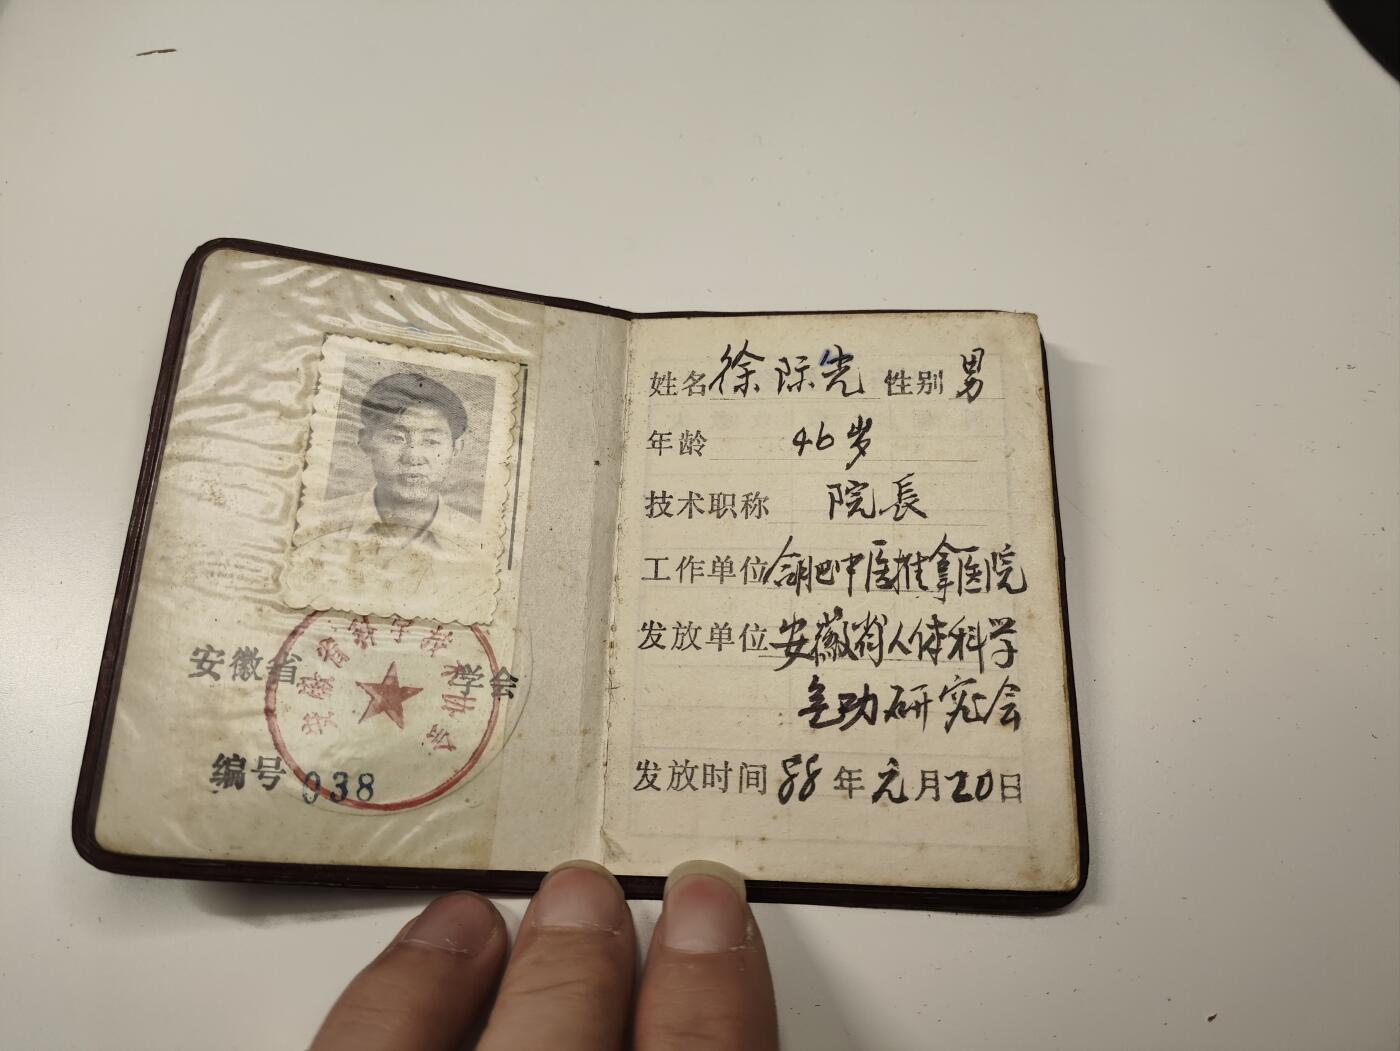 安徽省 学会
编号 038
姓名 徐际光 性别 男
年龄 46岁
技术职称 院長
工作单位 合肥中医推拿医院
发放单位 安徽省人体科学
气功研究会
发放时间 88年元月20日